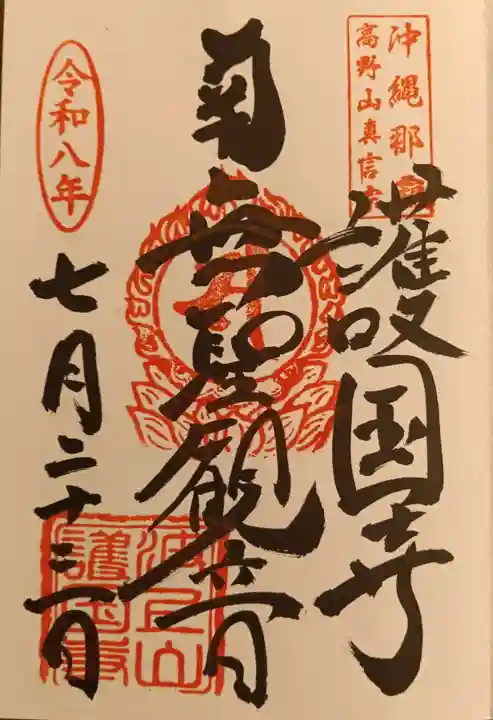 沖縄那覇
高野山真言宗
護国寺
南無聖観音
令和八年
七月二十三日
波上山
護国寺